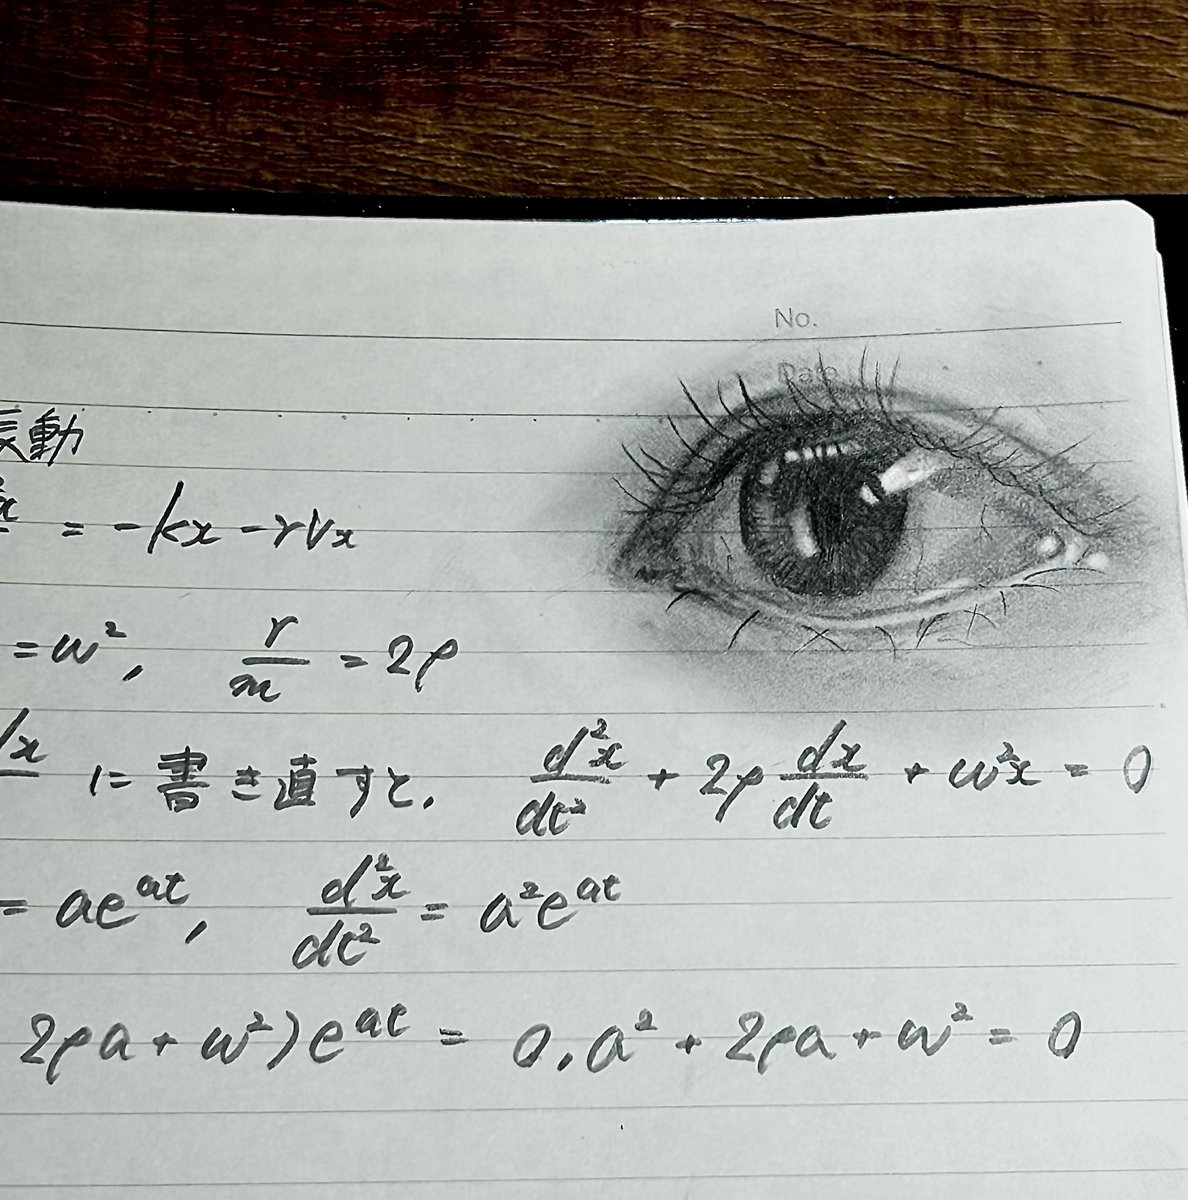 No.
Date
振動
= -kx - rvx
= ω², r/m = 2ρ
に書き直すと、 d²x/dt² + 2ρ dx/dt + ω²x = 0
= ae^{at}, d²x/dt² = a²e^{at}
2ρa + ω²)e^{at} = 0, a² + 2ρa + ω² = 0